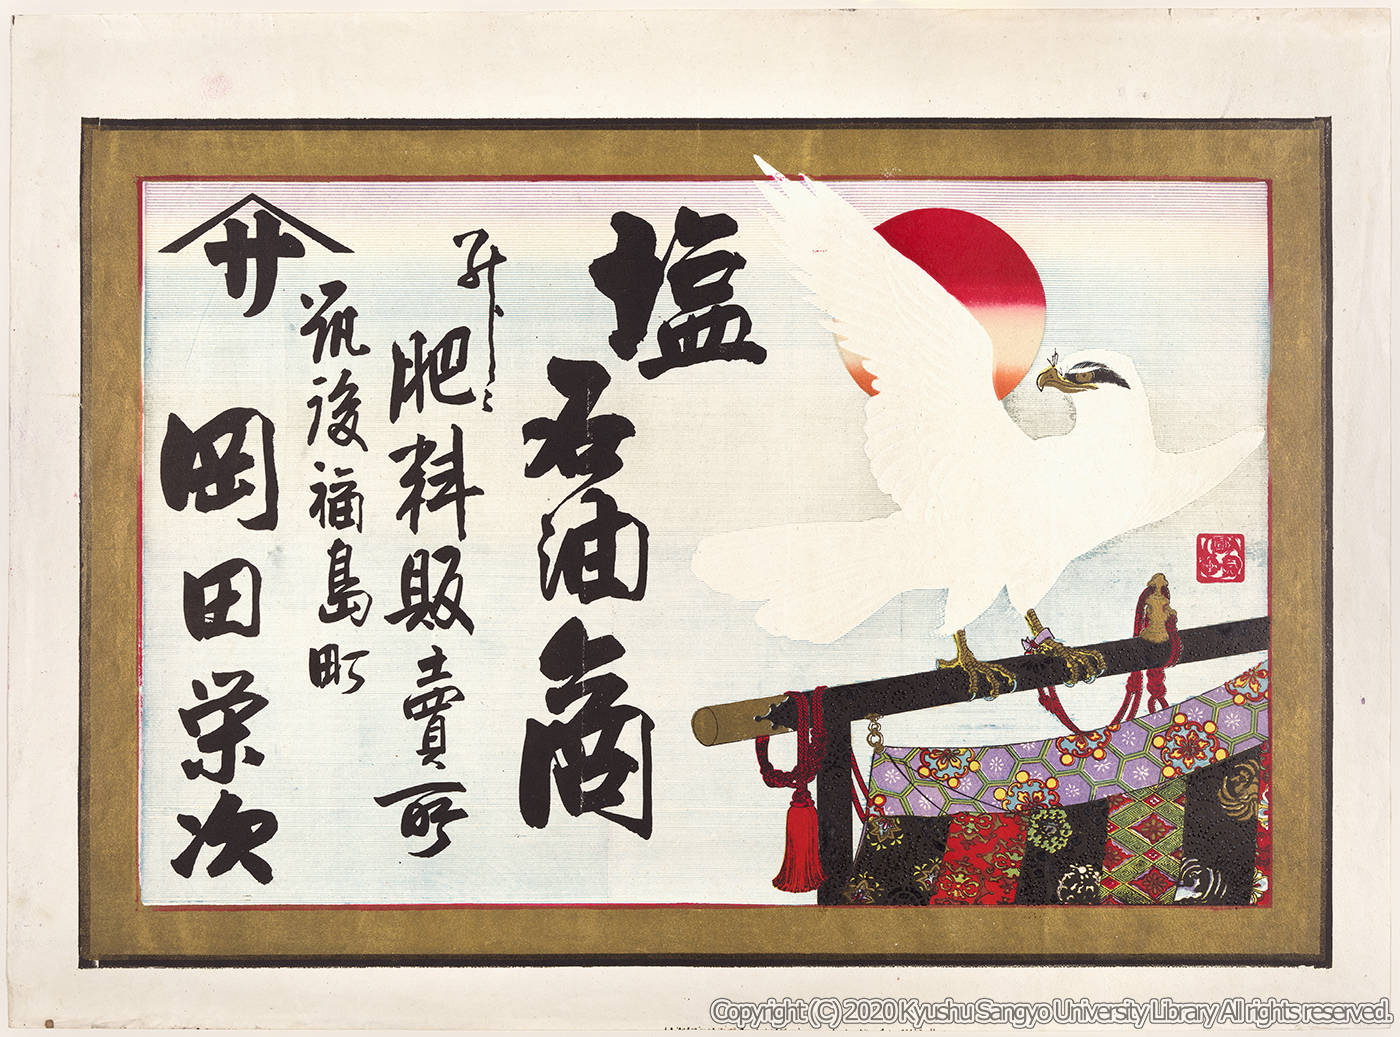 塩
石油商
肥料販賣所
筑後福島町
サ
岡田栄次
Copyright (C) 2020 Kyushu Sangyo University Library All rights reserved.